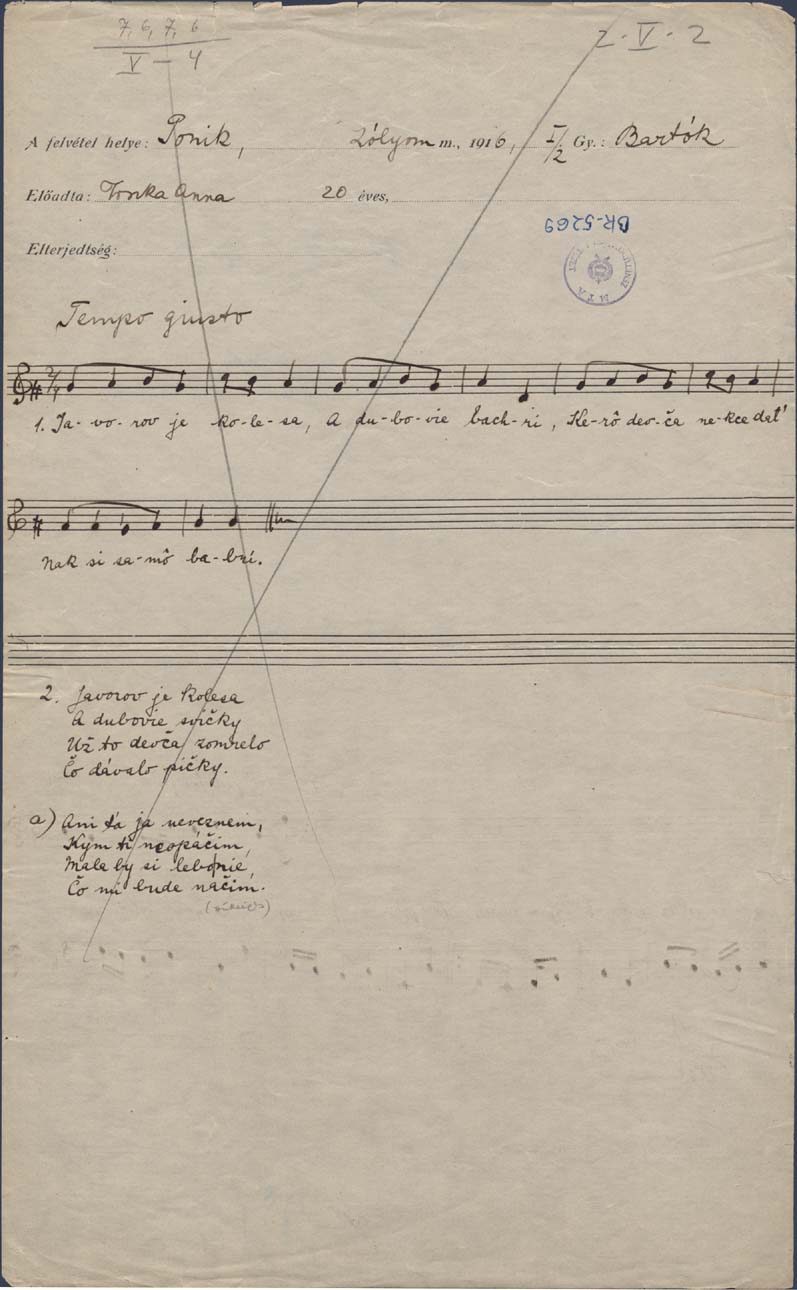 7, 6, 7, 6
V - 4
2 - V - 2
A felvétel helye: Ponik, Zólyom m., 1916, I/2 Gy.: Bartók
Előadta: Anna 20 éves,
BR-5269
Elterjedtség:
M T A
Tempo giusto
2/4
1. Ja-vo-rov je ko-le-sa, A du-bo-vie bach-ri, Ke-rô dev-ča ne-kce dať
Nak si sa-mô ba-bri.
2. Javorov je kolesa
A dubovie svičky
Už to devča zomrelo
Čo dávalo pičky.
a) Ani ťa ja neveznem,
Kým ti neopáčim,
Mala by si lebo nie,
Čo mi bude načim.